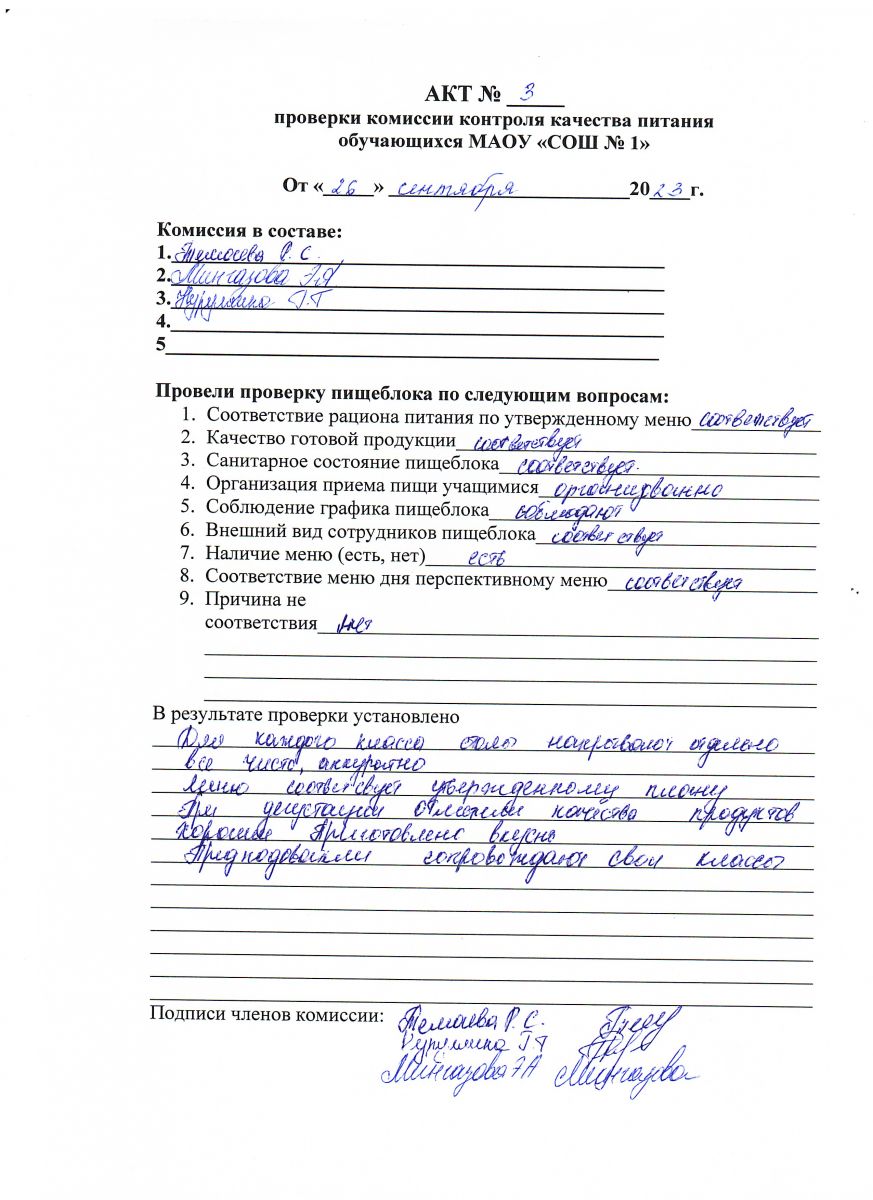 АКТ № 3
проверки комиссии контроля качества питания
обучающихся МАОУ «СОШ № 1»
От «26» сентября 2023 г.
Комиссия в составе:
1. Темаева Р. С.
2. Мингазова Э.А
3. Г.Г
4.
5
Провели проверку пищеблока по следующим вопросам:
1. Соответствие рациона питания по утвержденному меню соответствует
2. Качество готовой продукции соответствует
3. Санитарное состояние пищеблока соответствует.
4. Организация приема пищи учащимися организованно
5. Соблюдение графика пищеблока соблюдают
6. Внешний вид сотрудников пищеблока соответствует
7. Наличие меню (есть, нет) есть
8. Соответствие меню дня перспективному меню соответствует
9. Причина не
соответствия нет
В результате проверки установлено
Для каждого класса столы накрывают отдельно
все чисто, аккуратно
Меню соответсвует утвержденному плану
При дегустации отметили качество продуктов
хорошее Приготовлено вкусно
Преподователи сопровождают свои классы
Подписи членов комиссии: Темаева Р. С.
Г.Г
Мингазова Э А Мингазова